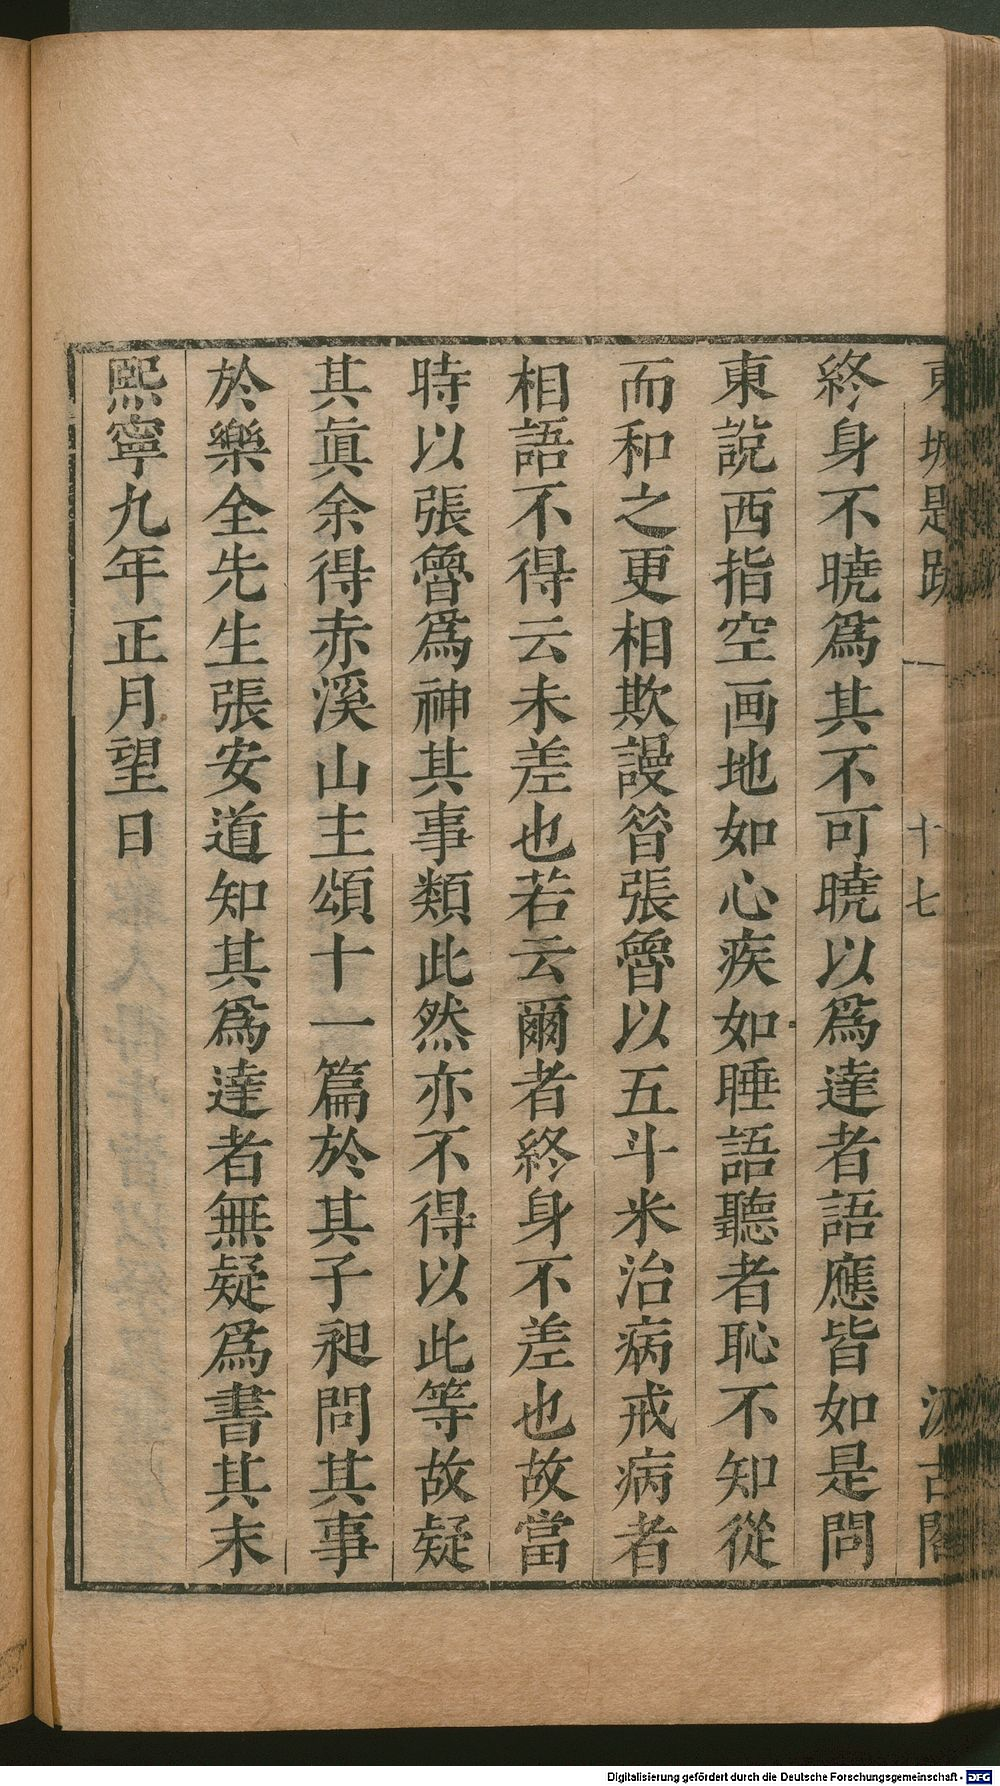 東坡題跋 一 十七 汲古閣
終身不曉爲其不可曉以爲達者語應皆如是問
東說西指空画地如心疾如睡語聽者恥不知從
而和之更相欺謾昝張魯以五斗米治病戒病者
相語不得云未差也若云爾者終身不差也故當
時以張魯爲神其事類此然亦不得以此等故疑
其眞余得赤溪山主頌十一篇於其子昶問其事
於樂全先生張安道知其爲達者無疑爲書其末
熙寧九年正月望日
Digitalisierung gefördert durch die Deutsche Forschungsgemeinschaft - DFG